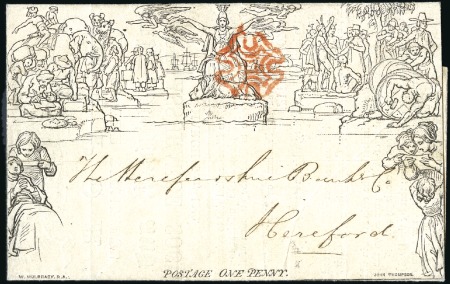 The Herefordshire Bank & Co.
Hereford.
W. MULREADY, R.A.
POSTAGE ONE PENNY.
JOHN THOMPSON.